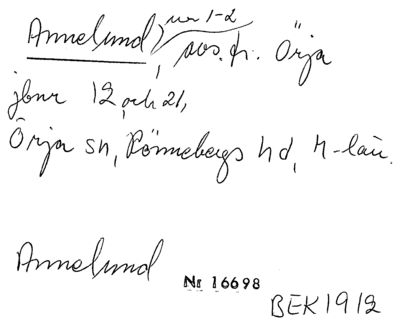 Annelund, nr 1-2
avs. fr. Örja
jbnr 12 och 21,
Örja sn, Rönnebergs hd, M-län.
Annelund
Nr 16698
BEK 1912